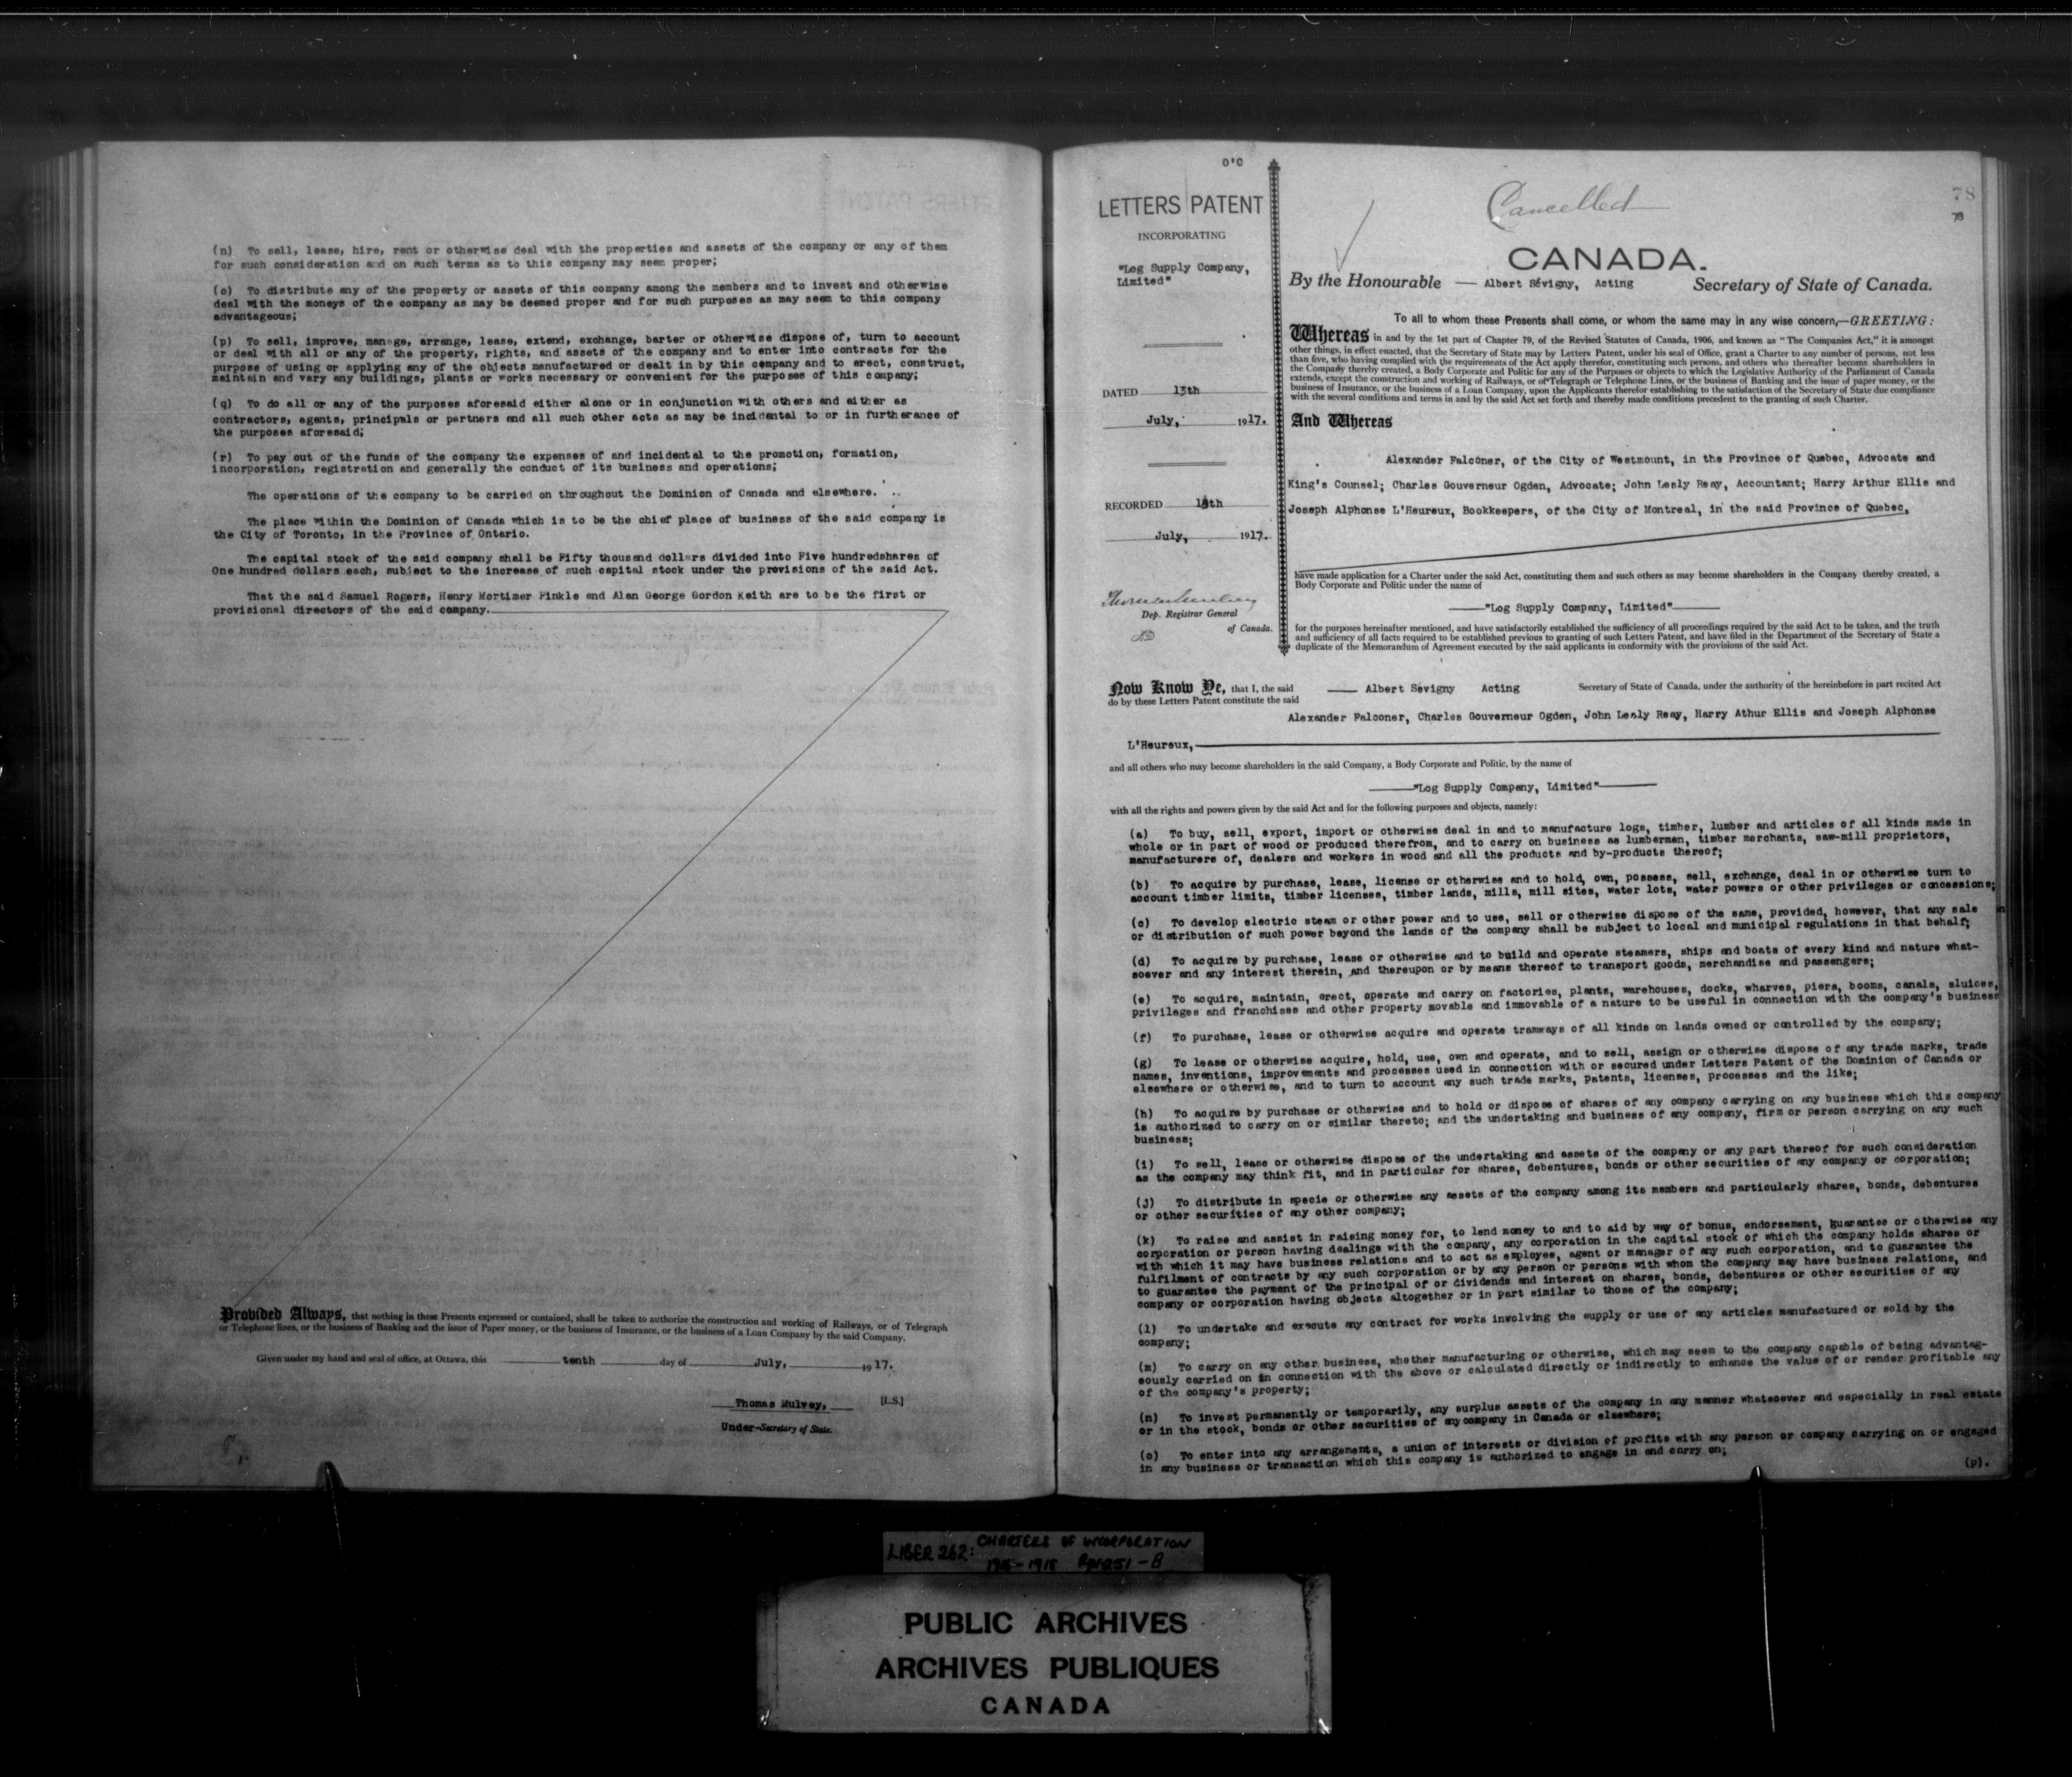 (n) To sell, lease, hire, rent or otherwise deal with the properties and assets of the company or any of them
for such consideration and on such terms as to this company may seem proper;
(o) To distribute any of the property or assets of this company among the members and to invest and otherwise
deal with the moneys of the company as may be deemed proper and for such purposes as may seem to this company
advantageous;
(p) To sell, improve, manage, arrange, lease, extend, exchange, barter or otherwise dispose of, turn to account
or deal with all or any of the property, rights, and assets of the company and to enter into contracts for the
purpose of using or applying any of the objects manufactured or dealt in by this company and to erect, construct,
maintain and vary any buildings, plants or works necessary or convenient for the purposes of this company;
(q) To do all or any of the purposes aforesaid either alone or in conjunction with others and either as
contractors, agents, principals or partners and all such other acts as may be incidental to or in furtherance of
the purposes aforesaid;
(r) To pay out of the funds of the company the expenses of and incidental to the promotion, formation,
incorporation, registration and generally the conduct of its business and operations;
The operations of the company to be carried on throughout the Dominion of Canada and elsewhere.
The place within the Dominion of Canada which is to be the chief place of business of the said company is
the City of Toronto, in the Province of Ontario.
The capital stock of the said company shall be Fifty thousand dollars divided into Five hundredshares of
One hundred dollars each, subject to the increase of such capital stock under the provisions of the said Act.
That the said Samuel Rogers, Henry Mortimer Finkle and Alan George Gordon Keith are to be the first or
provisional directors of the said company.
Provided Always, that nothing in these Presents expressed or contained, shall be taken to authorize the construction and working of Railways, or of Telegraph
or Telephone lines, or the business of Banking and the issue of Paper money, or the business of Insurance, or the business of a Loan Company by the said Company.
Given under my hand and seal of office, at Ottawa, this tenth day of July, 1917.
Thomas Mulvey, [L.S.]
Under-Secretary of State.
O'C
LETTERS PATENT
INCORPORATING
"Log Supply Company,
Limited"
DATED 13th
July, 1917.
RECORDED 18th
July, 1917.
Dep. Registrar General
of Canada.
Cancelled
78
78
CANADA.
By the Honourable — Albert Sévigny, Acting Secretary of State of Canada.
To all to whom these Presents shall come, or whom the same may in any wise concern,—GREETING:
Whereas in and by the 1st part of Chapter 79, of the Revised Statutes of Canada, 1906, and known as "The Companies Act," it is amongst
other things, in effect enacted, that the Secretary of State may by Letters Patent, under his seal of Office, grant a Charter to any number of persons, not less
than five, who having complied with the requirements of the Act apply therefor, constituting such persons, and others who thereafter become shareholders in
the Company thereby created, a Body Corporate and Politic for any of the Purposes or objects to which the Legislative Authority of the Parliament of Canada
extends, except the construction and working of Railways, or of Telegraph or Telephone Lines, or the business of Banking and the issue of paper money, or the
business of Insurance, or the business of a Loan Company, upon the Applicants therefor establishing to the satisfaction of the Secretary of State due compliance
with the several conditions and terms in and by the said Act set forth and thereby made conditions precedent to the granting of such Charter.
And Whereas
Alexander Falconer, of the City of Westmount, in the Province of Quebec, Advocate and
King's Counsel; Charles Gouverneur Ogden, Advocate; John Lesly Reay, Accountant; Harry Arthur Ellis and
Joseph Alphonse L'Heureux, Bookkeepers, of the City of Montreal, in the said Province of Quebec,
have made application for a Charter under the said Act, constituting them and such others as may become shareholders in the Company thereby created, a
Body Corporate and Politic under the name of
"Log Supply Company, Limited"
for the purposes hereinafter mentioned, and have satisfactorily established the sufficiency of all proceedings required by the said Act to be taken, and the truth
and sufficiency of all facts required to be established previous to granting of such Letters Patent, and have filed in the Department of the Secretary of State a
duplicate of the Memorandum of Agreement executed by the said applicants in conformity with the provisions of the said Act.
Now Know Ye, that I, the said — Albert Sévigny Acting Secretary of State of Canada, under the authority of the hereinbefore in part recited Act
do by these Letters Patent constitute the said
Alexander Falconer, Charles Gouverneur Ogden, John Lesly Reay, Harry Athur Ellis and Joseph Alphonse
L'Heureux,
and all others who may become shareholders in the said Company, a Body Corporate and Politic, by the name of
"Log Supply Company, Limited"
with all the rights and powers given by the said Act and for the following purposes and objects, namely:
(a) To buy, sell, export, import or otherwise deal in and to manufacture logs, timber, lumber and articles of all kinds made in
whole or in part of wood or produced therefrom, and to carry on business as lumbermen, timber merchants, saw-mill proprietors,
manufacturers of, dealers and workers in wood and all the products and by-products thereof;
(b) To acquire by purchase, lease, license or otherwise and to hold, own, possess, sell, exchange, deal in or otherwise turn to
account timber limits, timber licenses, timber lands, mills, mill sites, water lots, water powers or other privileges or concessions;
(c) To develop electric steam or other power and to use, sell or otherwise dispose of the same, provided, however, that any sale
or distribution of such power beyond the lands of the company shall be subject to local and municipal regulations in that behalf;
(d) To acquire by purchase, lease or otherwise and to build and operate steamers, ships and boats of every kind and nature what-
soever and any interest therein, and thereupon or by means thereof to transport goods, merchandise and passengers;
(e) To acquire, maintain, erect, operate and carry on factories, plants, warehouses, docks, wharves, piers, booms, canals, sluices,
privileges and franchises and other property movable and immovable of a nature to be useful in connection with the company's business
(f) To purchase, lease or otherwise acquire and operate tramways of all kinds on lands owned or controlled by the company;
(g) To lease or otherwise acquire, hold, use, own and operate, and to sell, assign or otherwise dispose of any trade marks, trade
names, inventions, improvements and processes used in connection with or secured under Letters Patent of the Dominion of Canada or
elsewhere or otherwise, and to turn to account any such trade marks, patents, licenses, processes and the like;
(h) To acquire by purchase or otherwise and to hold or dispose of shares of any company carrying on any business which this company
is authorized to carry on or similar thereto; and the undertaking and business of any company, firm or person carrying on any such
business;
(i) To sell, lease or otherwise dispose of the undertaking and assets of the company or any part thereof for such consideration
as the company may think fit, and in particular for shares, debentures, bonds or other securities of any company or corporation;
(j) To distribute in specie or otherwise any assets of the company among its members and particularly shares, bonds, debentures
or other securities of any other company;
(k) To raise and assist in raising money for, to lend money to and to aid by way of bonus, endorsement, guarantee or otherwise any
corporation or person having dealings with the company, any corporation in the capital stock of which the company holds shares or
with which it may have business relations and to act as employee, agent or manager of any such corporation, and to guarantee the
fulfilment of contracts by any such corporation or by any person or persons with whom the company may have business relations, and
to guarantee the payment of the principal of or dividends and interest on shares, bonds, debentures or other securities of any
company or corporation having objects altogether or in part similar to those of the company;
(l) To undertake and execute any contract for works involving the supply or use of any articles manufactured or sold by the
company;
(m) To carry on any other business, whether manufacturing or otherwise, which may seem to the company capable of being advantag-
eously carried on in connection with the above or calculated directly or indirectly to enhance the value of or render profitable any
of the company's property;
(n) To invest permanently or temporarily, any surplus assets of the company in any manner whatsoever and especially in real estate
or in the stock, bonds or other securities of anycompany in Canada or elsewhere;
(o) To enter into any arrangements, a union of interests or division of profits with any person or company carrying on or engaged
in any business or transaction which this company is authorized to engage in and carry on;
(p).
LIBER 262: CHARTERS OF INCORPORATION
PUBLIC ARCHIVES
ARCHIVES PUBLIQUES
CANADA